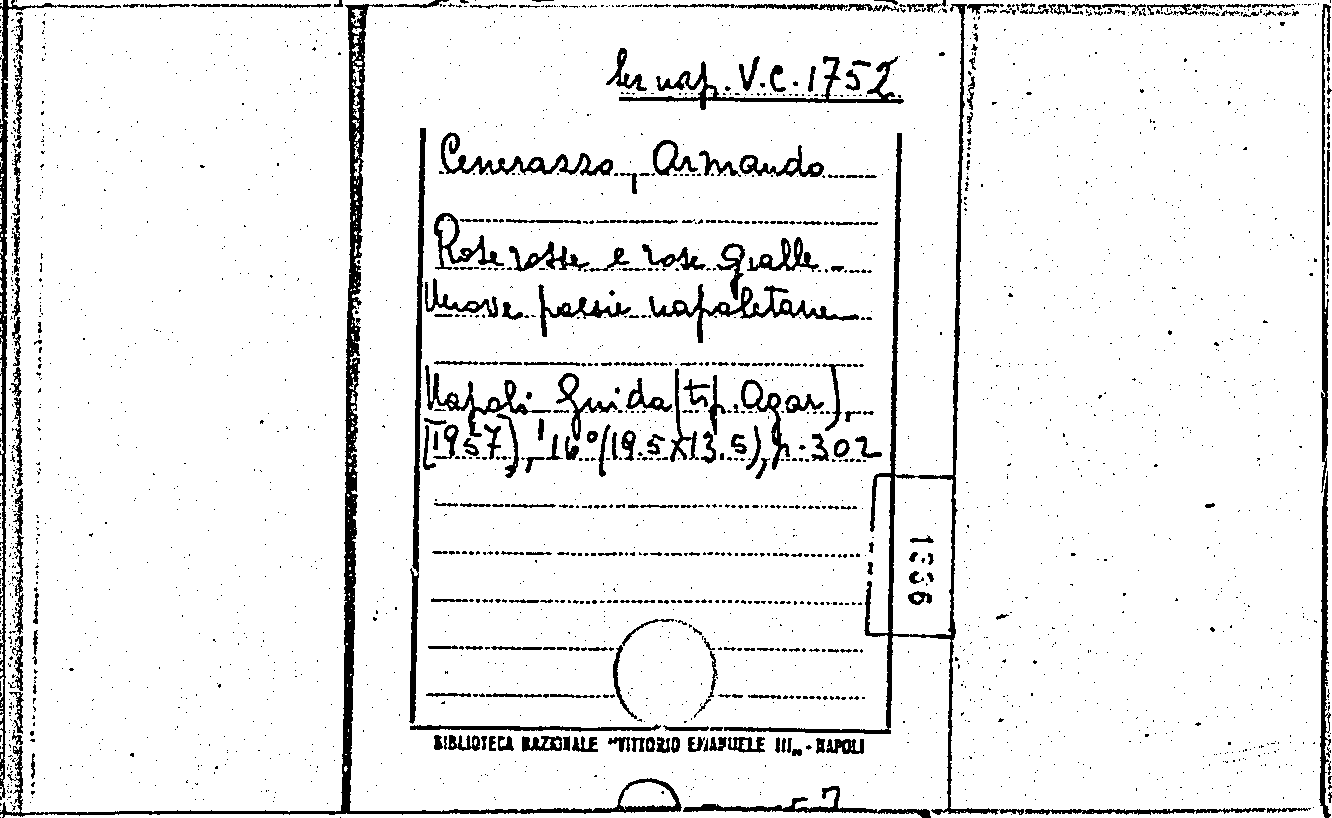 Sez nap. V.C. 1752
Cenerazzo, Armando
Rose rosse e rose gialle -
Nuove poesie napoletane
Napoli Guida (tip. Agar),
[1957], 16° (19.5x13.5), p. 302
1996
BIBLIOTECA NAZIONALE "VITTORIO EMANUELE III„ - NAPOLI